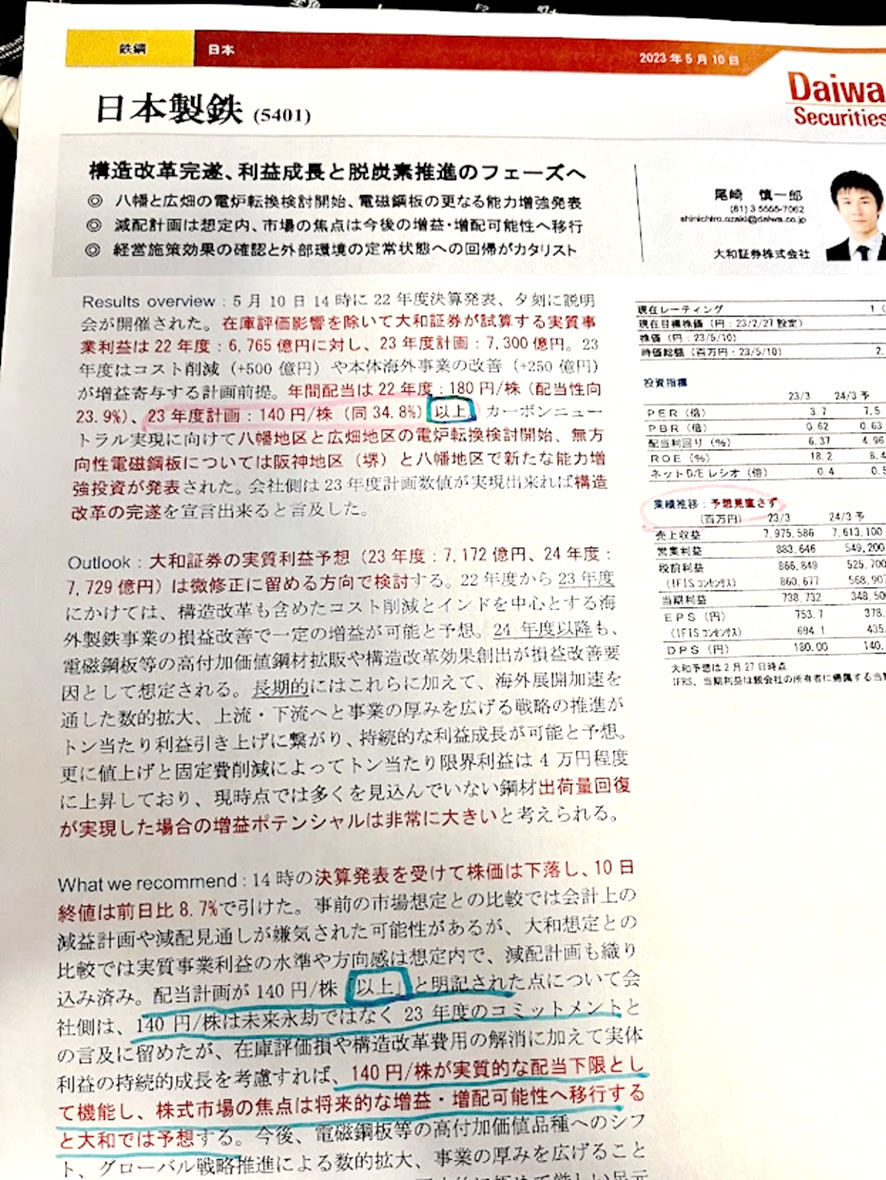 鉄鋼
日本
2023年5月10日
Daiwa
Securities
日本製鉄 (5401)
構造改革完遂、利益成長と脱炭素推進のフェーズへ
◎ 八幡と広畑の電炉転換検討開始、電磁鋼板の更なる能力増強発表
◎ 減配計画は想定内、市場の焦点は今後の増益・増配可能性へ移行
◎ 経営施策効果の確認と外部環境の定常状態への回帰がカタリスト
尾崎 慎一郎
(81) 3 5555-7062
shinichiro.ozaki@daiwa.co.jp
大和証券株式会社
Results overview：5月10日14時に22年度決算発表、夕刻に説明
会が開催された。在庫評価影響を除いて大和証券が試算する実質事
業利益は22年度：6,765億円に対し、23年度計画：7,300億円。23
年度はコスト削減（+500億円）や本体海外事業の改善（+250億円）
が増益寄与する計画前提。年間配当は22年度：180円/株（配当性向
23.9%）、23年度計画：140円/株（同34.8%）以上。カーボンニュー
トラル実現に向けて八幡地区と広畑地区の電炉転換検討開始、無方
向性電磁鋼板については阪神地区（堺）と八幡地区で新たな能力増
強投資が発表された。会社側は23年度計画数値が実現出来れば構造
改革の完遂を宣言出来ると言及した。
Outlook：大和証券の実質利益予想（23年度：7,172億円、24年度：
7,729億円）は微修正に留める方向で検討する。22年度から23年度
にかけては、構造改革も含めたコスト削減とインドを中心とする海
外製鉄事業の損益改善で一定の増益が可能と予想。24年度以降も、
電磁鋼板等の高付加価値鋼材拡販や構造改革効果創出が損益改善要
因として想定される。長期的にはこれらに加えて、海外展開加速を
通した数的拡大、上流・下流へと事業の厚みを広げる戦略の推進が
トン当たり利益引き上げに繋がり、持続的な利益成長が可能と予想。
更に値上げと固定費削減によってトン当たり限界利益は4万円程度
に上昇しており、現時点では多くを見込んでいない鋼材出荷量回復
が実現した場合の増益ポテンシャルは非常に大きいと考えられる。
What we recommend：14時の決算発表を受けて株価は下落し、10日
終値は前日比8.7%で引けた。事前の市場想定との比較では会計上の
減益計画や減配見通しが嫌気された可能性があるが、大和想定との
比較では実質事業利益の水準や方向感は想定内で、減配計画も織り
込み済み。配当計画が140円/株「以上」と明記された点について会
社側は、140円/株は未来永劫ではなく23年度のコミットメントと
の言及に留めたが、在庫評価損や構造改革費用の解消に加えて実体
利益の持続的成長を考慮すれば、140円/株が実質的な配当下限とし
て機能し、株式市場の焦点は将来的な増益・増配可能性へ移行する
と大和では予想する。今後、電磁鋼板等の高付加価値品種へのシフ
ト、グローバル戦略推進による数的拡大、事業の厚みを広げること
現在レーティング
現在目標株価（円：23/2/27設定）
株価（円：23/5/10）
時価総額（百万円：23/5/10）
投資指標
23/3 24/3予
PER（倍） 3.7 7.5
PBR（倍） 0.62 0.63
配当利回り（%） 6.37 4.96
ROE（%） 18.2 8.4
ネットD/Eレシオ（倍） 0.4 0.5
業績推移：予想見直さず
（百万円） 23/3 24/3予
売上収益 7,975,586 7,613,100
営業利益 883,646 549,200
税前利益 866,849 525,700
（IFISコンセンサス） 860,677 568,907
当期利益 738,732 348,500
EPS（円） 753.7 378.
（IFISコンセンサス） 694.1 435.
DPS（円） 180.00 140.
大和予想は2月27日時点
IFRS、当期利益は親会社の所有者に帰属する当期